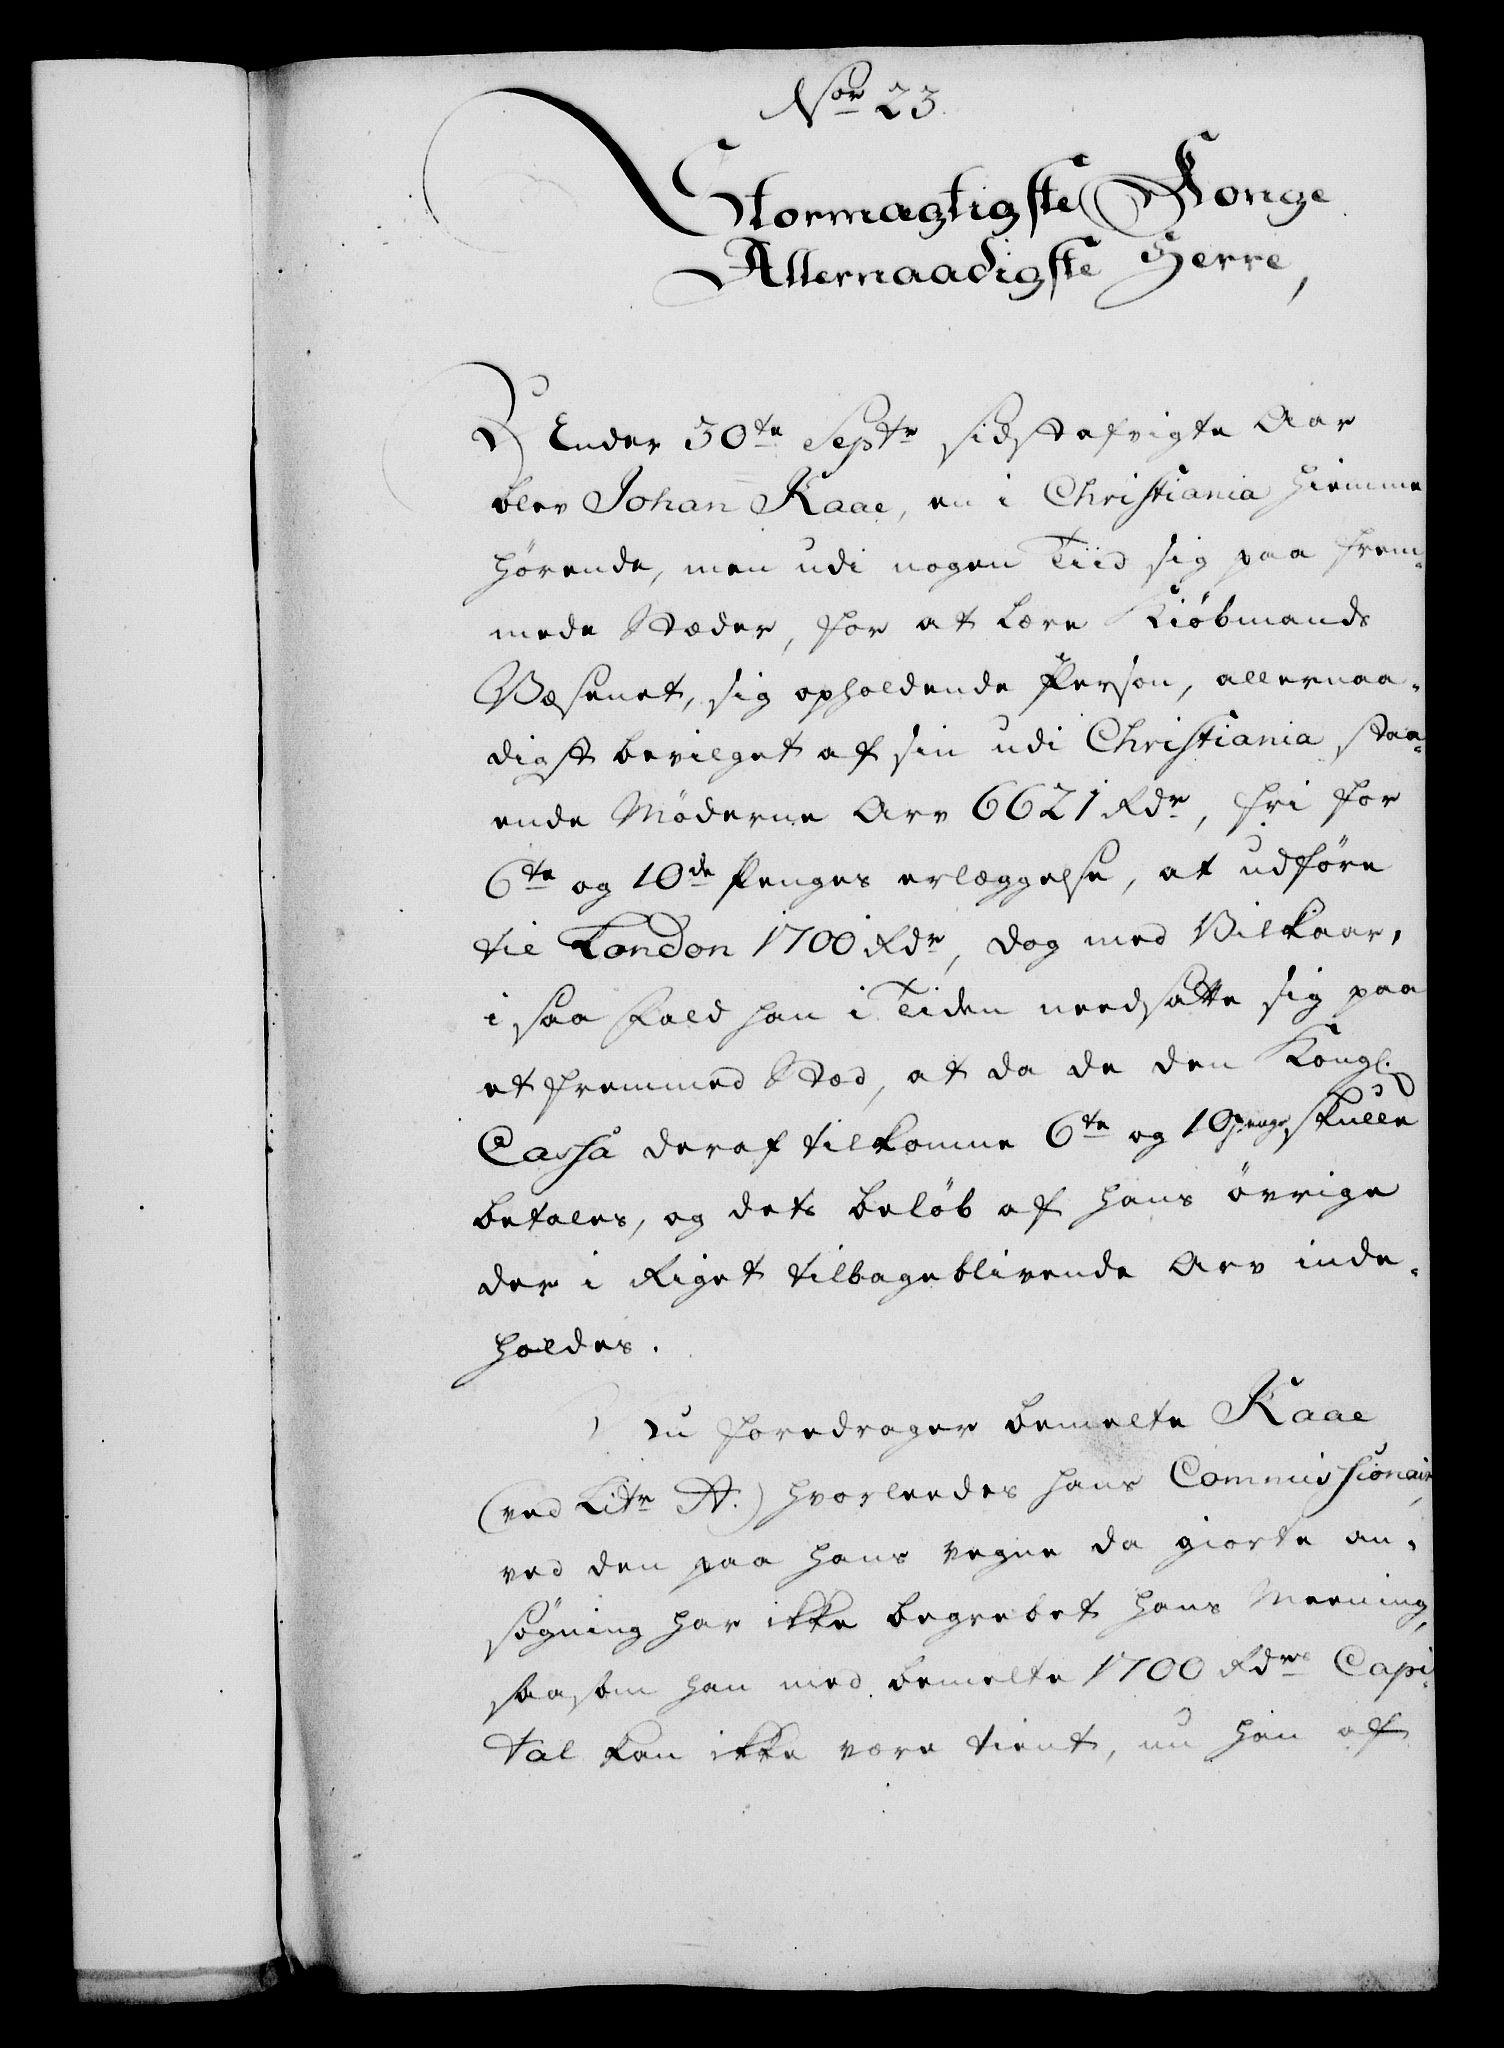 Nor 23.
Stormagtigste Konge
Allernaadigste Herre,
Under 30te Septr sidstafvigte Aar
blev Johan Kaae, en i Christiania hiemme
hørende, men udi nogen Tiid sig paa frem-
mede Stæder, for at lære Kiøbmands
Væsenet, sig opholdende Person, allernaa-
digst bevilget af sin udi Christiania staa-
ende Møderne Arv 6621 Rdr, fri for
6te og 10de Penges erlæggelse, at udføre
til London 1700 Rdr, dog med Vilkaar,
i saa Fald han i Tiden needsatte sig paa
et fremmed Stæd, at da de den Kongl.
Cassa deraf tilkomne 6te og 10 penge skulle
betales, og dets beløb af hans øvrige
der i Riget tilbageblivende Arv inde-
holdes.
Nu foredrager bemelte Kaae
(ved Litr A.) hvorleedes hans Commissionair,
ved den paa hans vegne da giorte an-
søgning har ikke begrebet hans Meening,
saasom han med bemelte 1700 Rdrs Capi-
tal kan ikke være tient, nu hen af